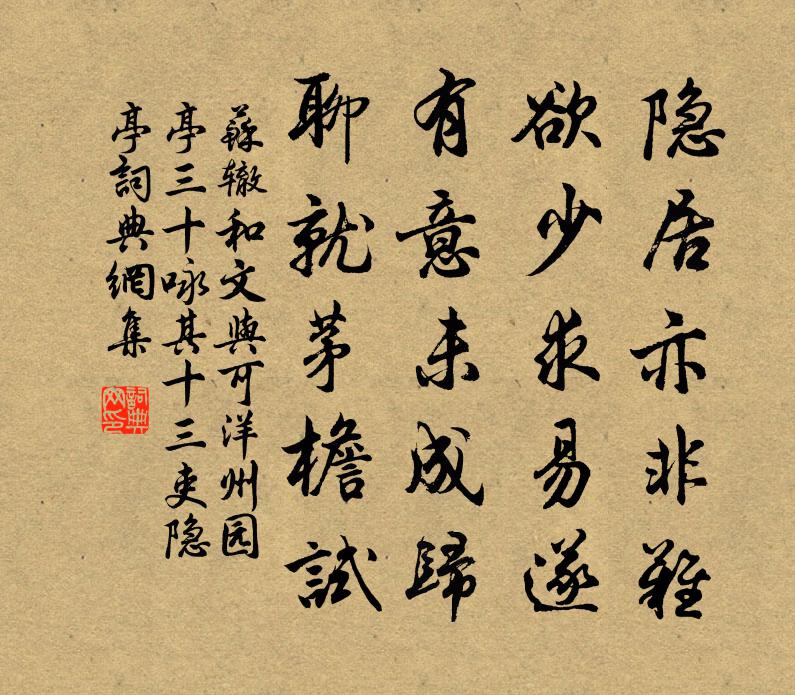 隐居亦非难
欲少求易遂
有意未成歸
聊就茅檐試
蘇辙和文與可洋州园
亭三十咏其十三吏隐
亭詞典網集
詞典
网印